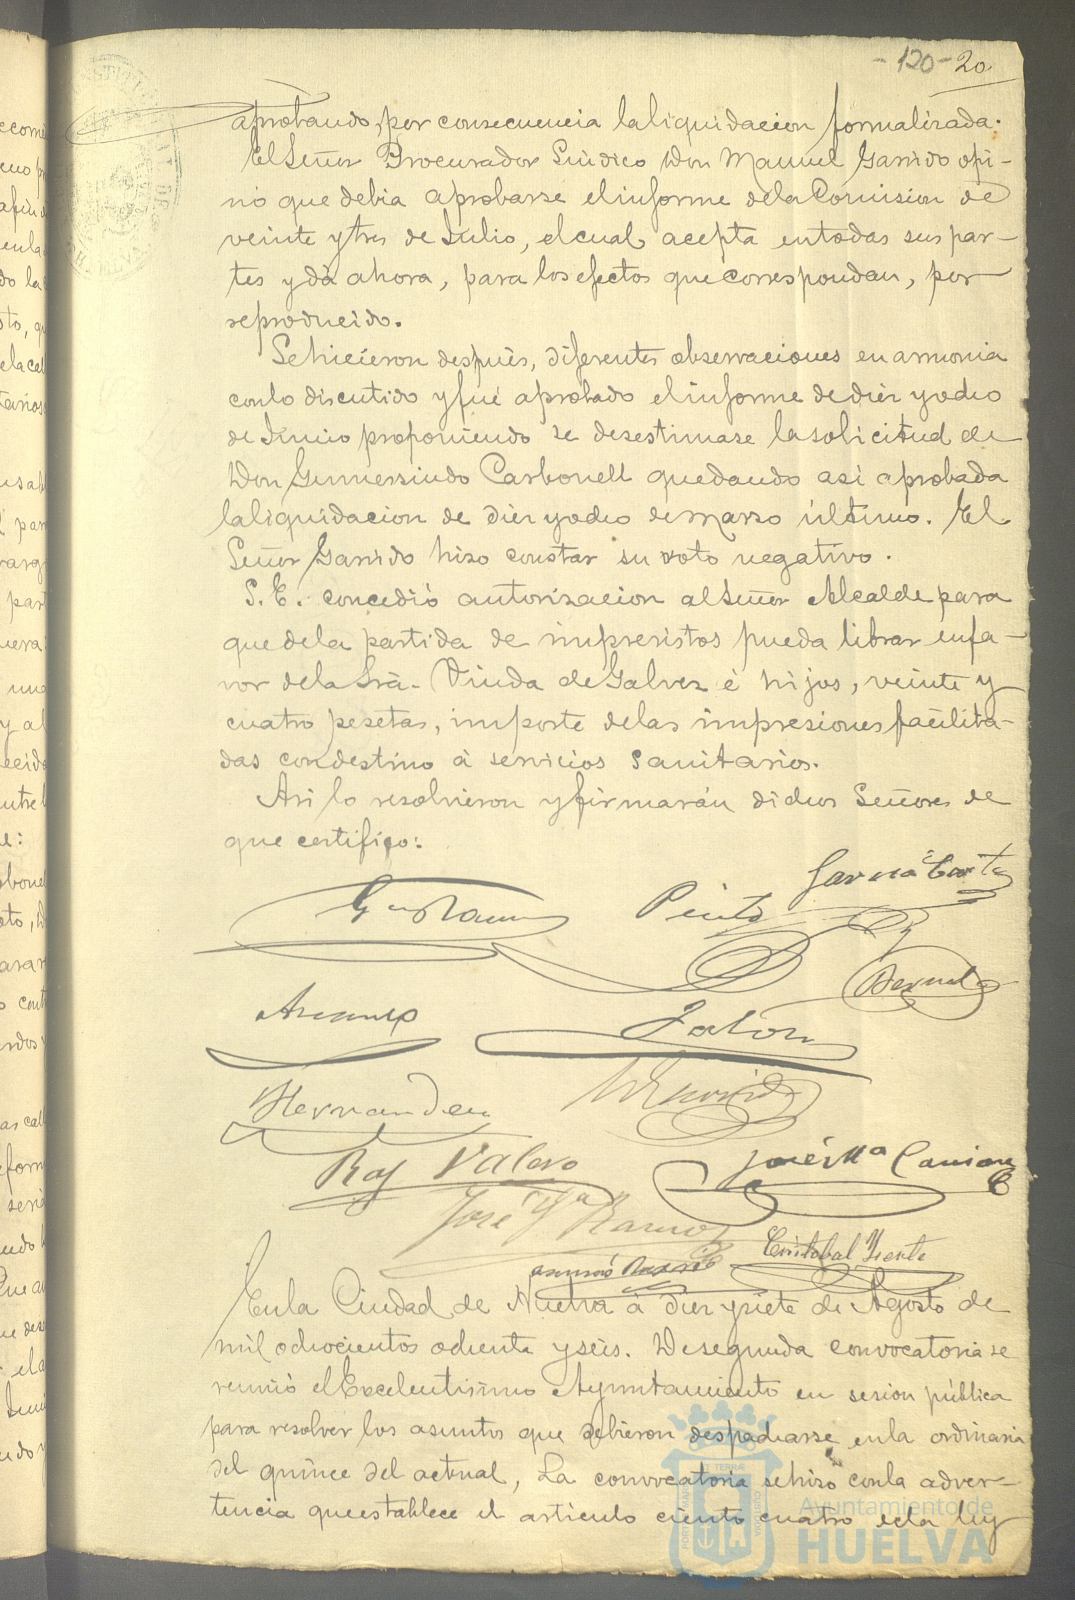 -120- 20
aprobando, por consecuencia la liquidacion formalizada.
El Señor Procurador Sindico Don Manuel Garrido opi-
nó que debia aprobarse el informe de la Comision de
veinte y tres de Julio, el cual acepta en todas sus par-
tes y dá ahora, para los efectos que correspondan, por
reproducido.
Se hicieron despues, diferentes observaciones en armonia
con lo discutido y fué aprobado el informe de diez y ocho
de Junio proponiendo se desestimase la solicitud de
Don Gumersindo Carbonell quedando asi aprobada
la liquidacion de diez y ocho de marzo último. El
Señor Garrido hizo constar su voto negativo.
S. E. concedió autorizacion al Señor Alcalde para
que de la partida de imprevistos pueda librar en fa-
vor de la Srâ. Viuda de Galvez é hijos, veinte y
cuatro pesetas, importe de las impresiones facilita-
das con destino á servicios sanitarios.
Asi lo resolvieron y firmarán dichos Señores de
que certifico:
Garcia
Pinto
Hernandez
Roj Valero
José Mª
José Mª Ramos
Cristobal
En la Ciudad de Huelva á diez y siete de Agosto de
mil ochocientos ochenta y seis. De segunda convocatoria se
reunió el Excelentisimo Ayuntamiento en sesion pública
para resolver los asuntos que debieron despacharse en la ordinaria
del quince del actual, La convocatoria se hizo con la adver-
tencia que establece el articulo ciento cuatro de la ley
Ayuntamiento de
HUELVA